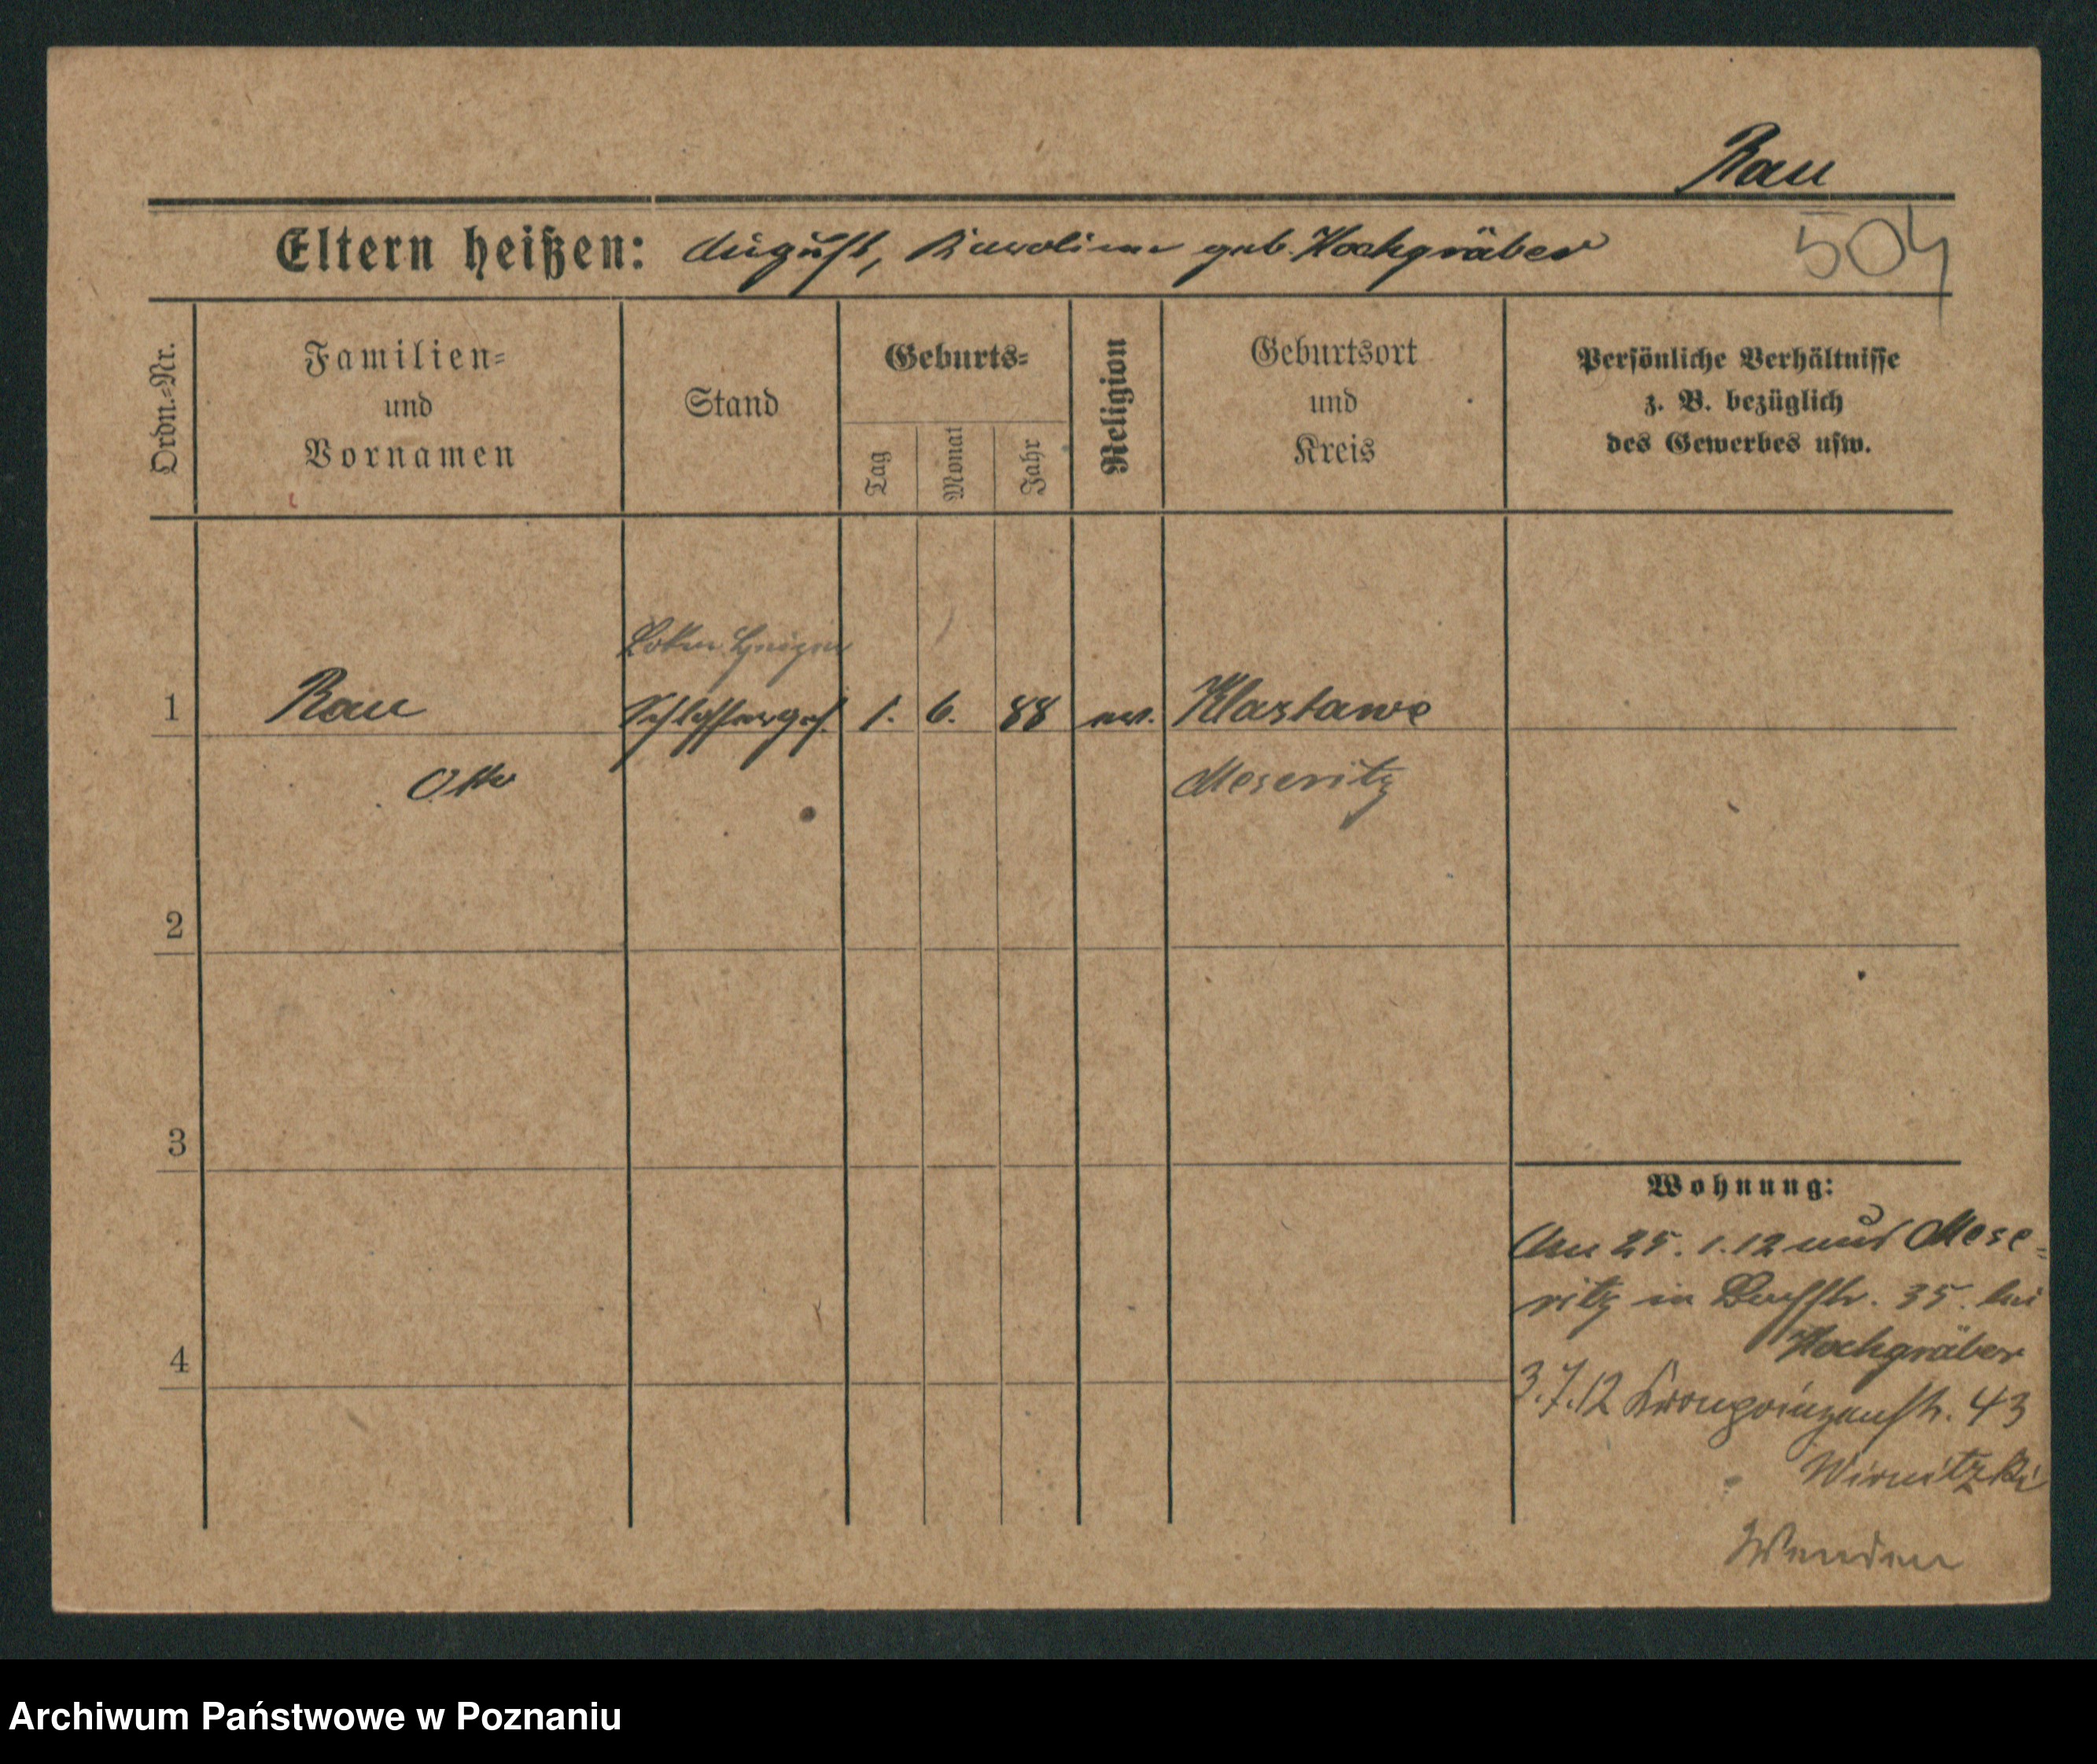 Rau
Eltern heißen: August, Karoline geb. Hochgräber
504
Ordn.-Nr.
Familien-
und
Vornamen
Stand
Geburts-
Tag
Monat
Jahr
Religion
Geburtsort
und
Kreis
Persönliche Verhältnisse
z. B. bezüglich
des Gewerbes usw.
Lokm. Heizer
1 Rau Schlosserges. 1. 6. 88 ev. Klastawe
Otto Meseritz
2
3
4
Wohnung:
Am 25. 1. 12 aus Mese-
ritz in Bachstr. 35. bei
Hochgräber
3.7.12 Kronprinzenstr. 43
Wirnitzki
Wenden
Archiwum Państwowe w Poznaniu